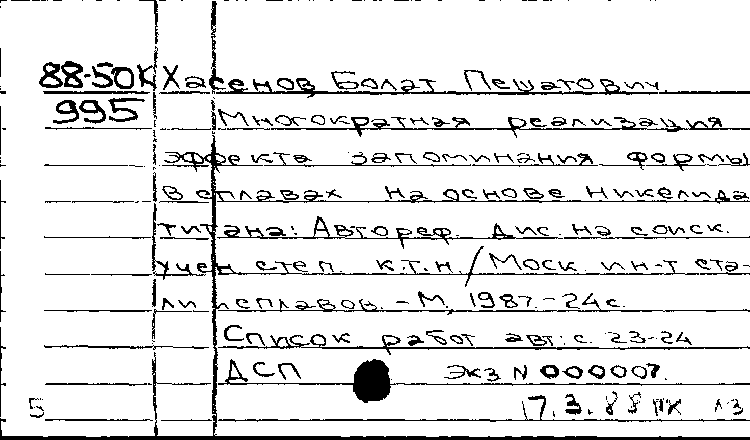 88-50К Хасенов, Болат Пешатович.
995
Многократная реализация
эффекта запоминания формы
в сплавах на основе никелида
титана: Автореф. дис. на соиск.
учен. степ. к.т.н. / Моск. ин-т ста-
ли и сплавов. - М., 1987. - 24 с.
Список работ авт.: с. 23-24
ДСП Экз N 000007.
5 17.3.88